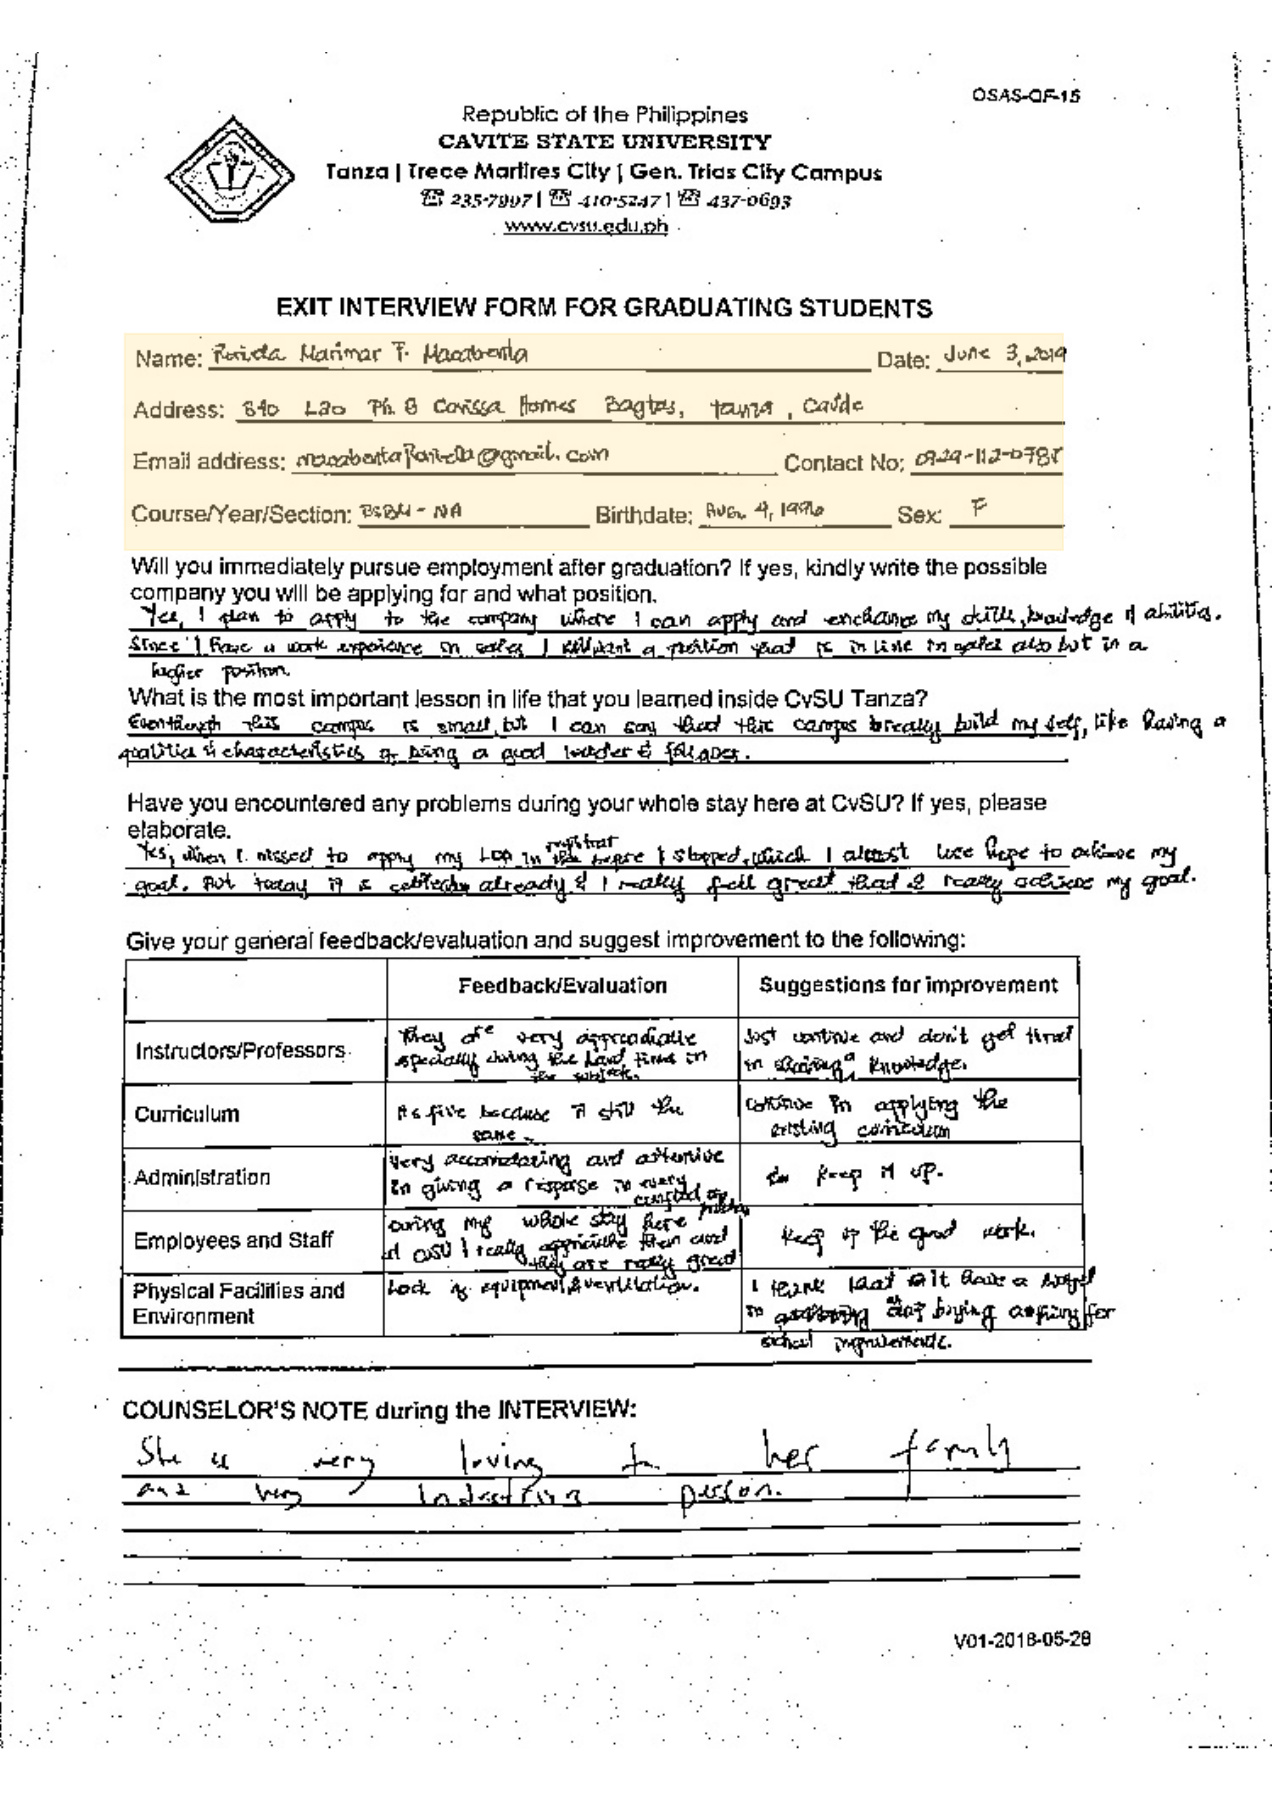 OSAS-QF-15
Republic of the Philippines
CAVITE STATE UNIVERSITY
Tanza | Trece Martires City | Gen. Trias City Campus
☎ 235-7997 | ☎ 410-5247 | ☎ 437-0693
www.cvsu.edu.ph
EXIT INTERVIEW FORM FOR GRADUATING STUDENTS
Name: Marimar F. Macabenta Date: June 3, 2019
Address: B40 L20 Ph. 8 Carissa Homes Bagtas, tanza, Cavite
Email address: @gmail.com Contact No: 0929-112-078
Course/Year/Section: BSBM - NA Birthdate: Aug. 4, 1996 Sex: F
Will you immediately pursue employment after graduation? If yes, kindly write the possible
company you will be applying for and what position.
Yes, I plan to apply to the company where I can apply and enchance my skills, knowledge & abilities.
Since I have a work experience in sales I want a position that is in line in sales also but in a
higher position.
What is the most important lesson in life that you learned inside CvSU Tanza?
Eventhough this campus is small, but I can say that this campus really build my self, like having a
qualities & characteristics of being a good leader & follower.
Have you encountered any problems during your whole stay here at CvSU? If yes, please
elaborate.
Yes, when I missed to apply my LOA in registrar before I stopped, which I almost lose hope to achieve my
goal. But today it is already & I really feel great that I really achieve my goal.
Give your general feedback/evaluation and suggest improvement to the following:
Feedback/Evaluation Suggestions for improvement
Instructors/Professors
They are very
specially during the hard times in
the subject.
Just continue and don't get tired
in sharing knowledge.
Curriculum
As five because it still the
same.
Continue in applying the
existing curriculum
Administration
Very accomodating and attentive
in giving a response in every
Keep it up.
Employees and Staff
During my whole stay here
at CvSU I really appriciate them and
they are really great
Keep up the good work.
Physical Facilities and
Environment
Lack of equipment & ventilation.
I think that it have a budget
in buying for
school improvements.
COUNSELOR'S NOTE during the INTERVIEW:
She is very loving to her family
and very person.
V01-2018-05-28